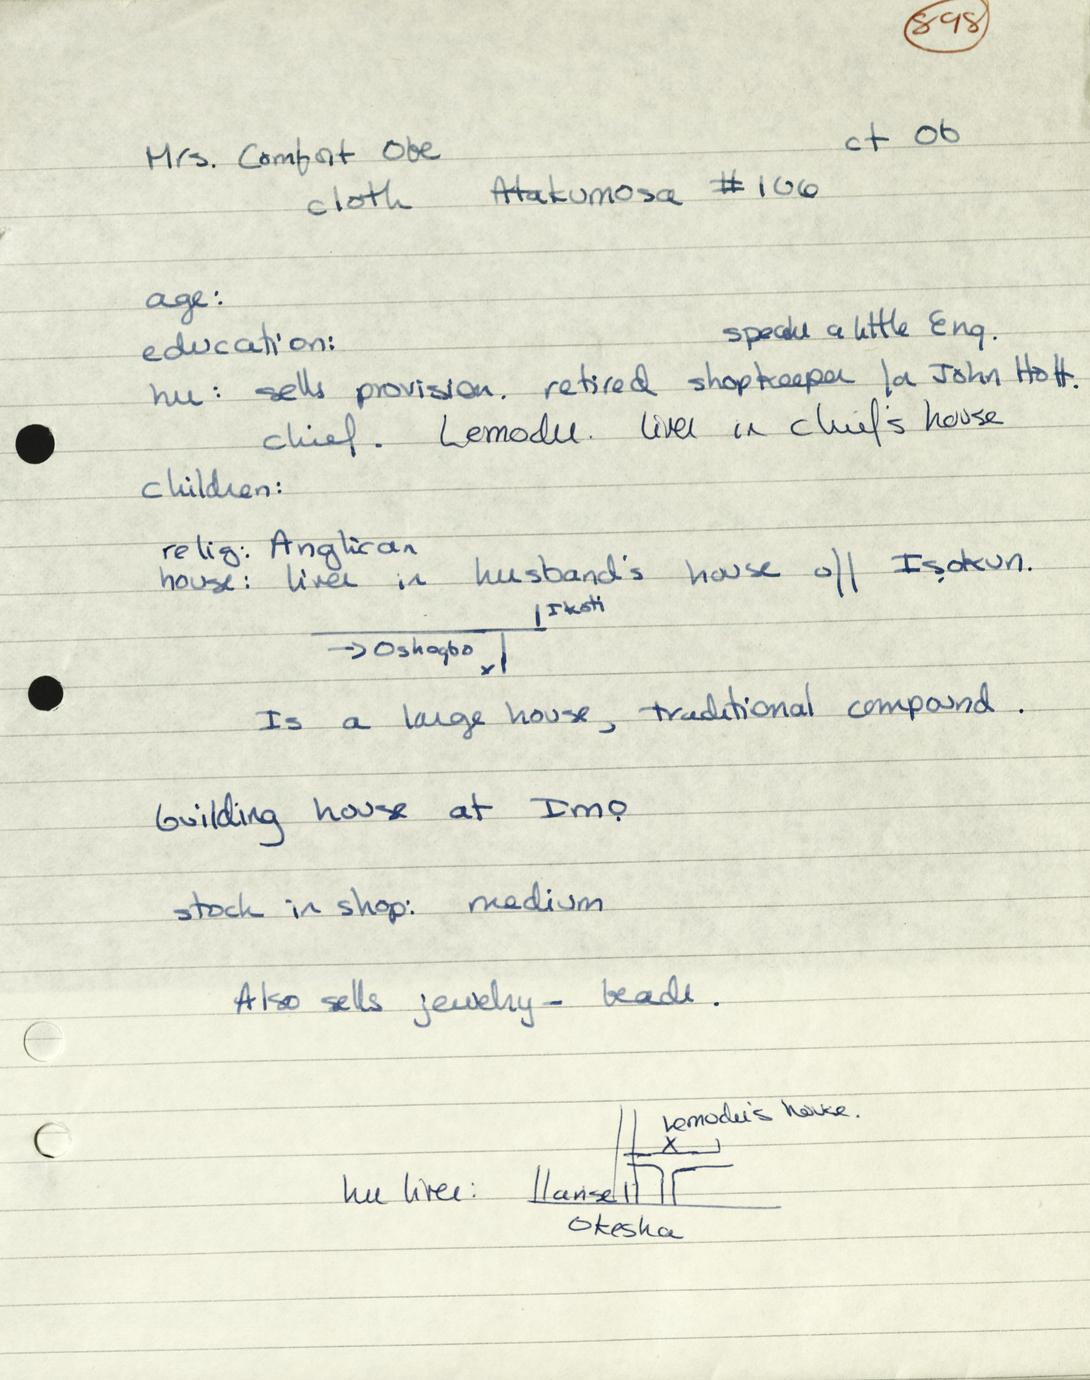 898
Mrs. Comfort Obe ct 06
cloth Atakumosa #106
age:
education: speaks a little Eng.
hu: sells provision. retired shopkeeper for John Holt.
chief. Lemodu. lives in chief's house
children:
relig: Anglican
house: lives in husband's house off Iṣokun.
Ikoti
→ Oshogbo x
Is a large house, traditional compound.
building house at Imọ
stock in shop: medium
Also sells jewelry - beads.
Lemodu's house.
X
hu lives:
Okesha